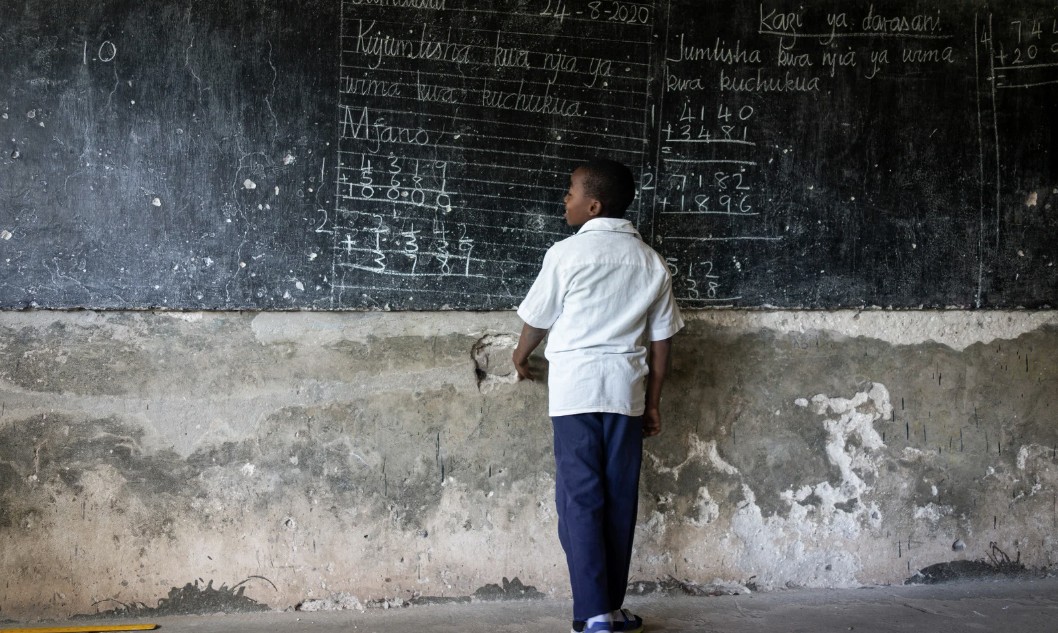 10
24-8-2020
Kujumlisha kwa njia ya
wima kwa kuchukua.
Mfano
1 4 3 1 9
+ 5 6 8 1
10 0 0 0
2
+ 1 3 3 7
3 7 8 9
Kazi ya darasani.
Jumlisha kwa njia ya wima
kwa kuchukua.
1 4140
+3481
=
2 7182
+1896
512
38
4 74
+20
=